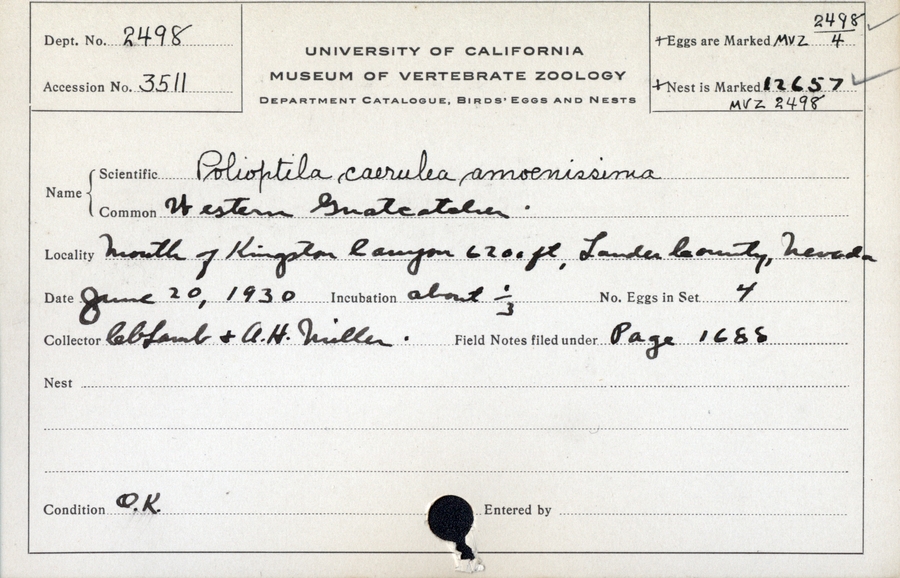 Dept. No. 2498
Accession No. 3511
UNIVERSITY OF CALIFORNIA
MUSEUM OF VERTEBRATE ZOOLOGY
DEPARTMENT CATALOGUE, BIRDS' EGGS AND NESTS
+Eggs are Marked MVZ 2498/4
+Nest is Marked 12657
MVZ 2498
Name
Scientific Polioptila caerulea amoenissima
Common Western Gnatcatcher.
Locality Mouth of Kingston Canyon 6200 ft, Lander County, Nevada
Date June 20, 1930 Incubation about 1/3 No. Eggs in Set 4
Collector CC Lamb + A.H. Miller. Field Notes filed under Page 1688
Nest
Condition O.K. Entered by